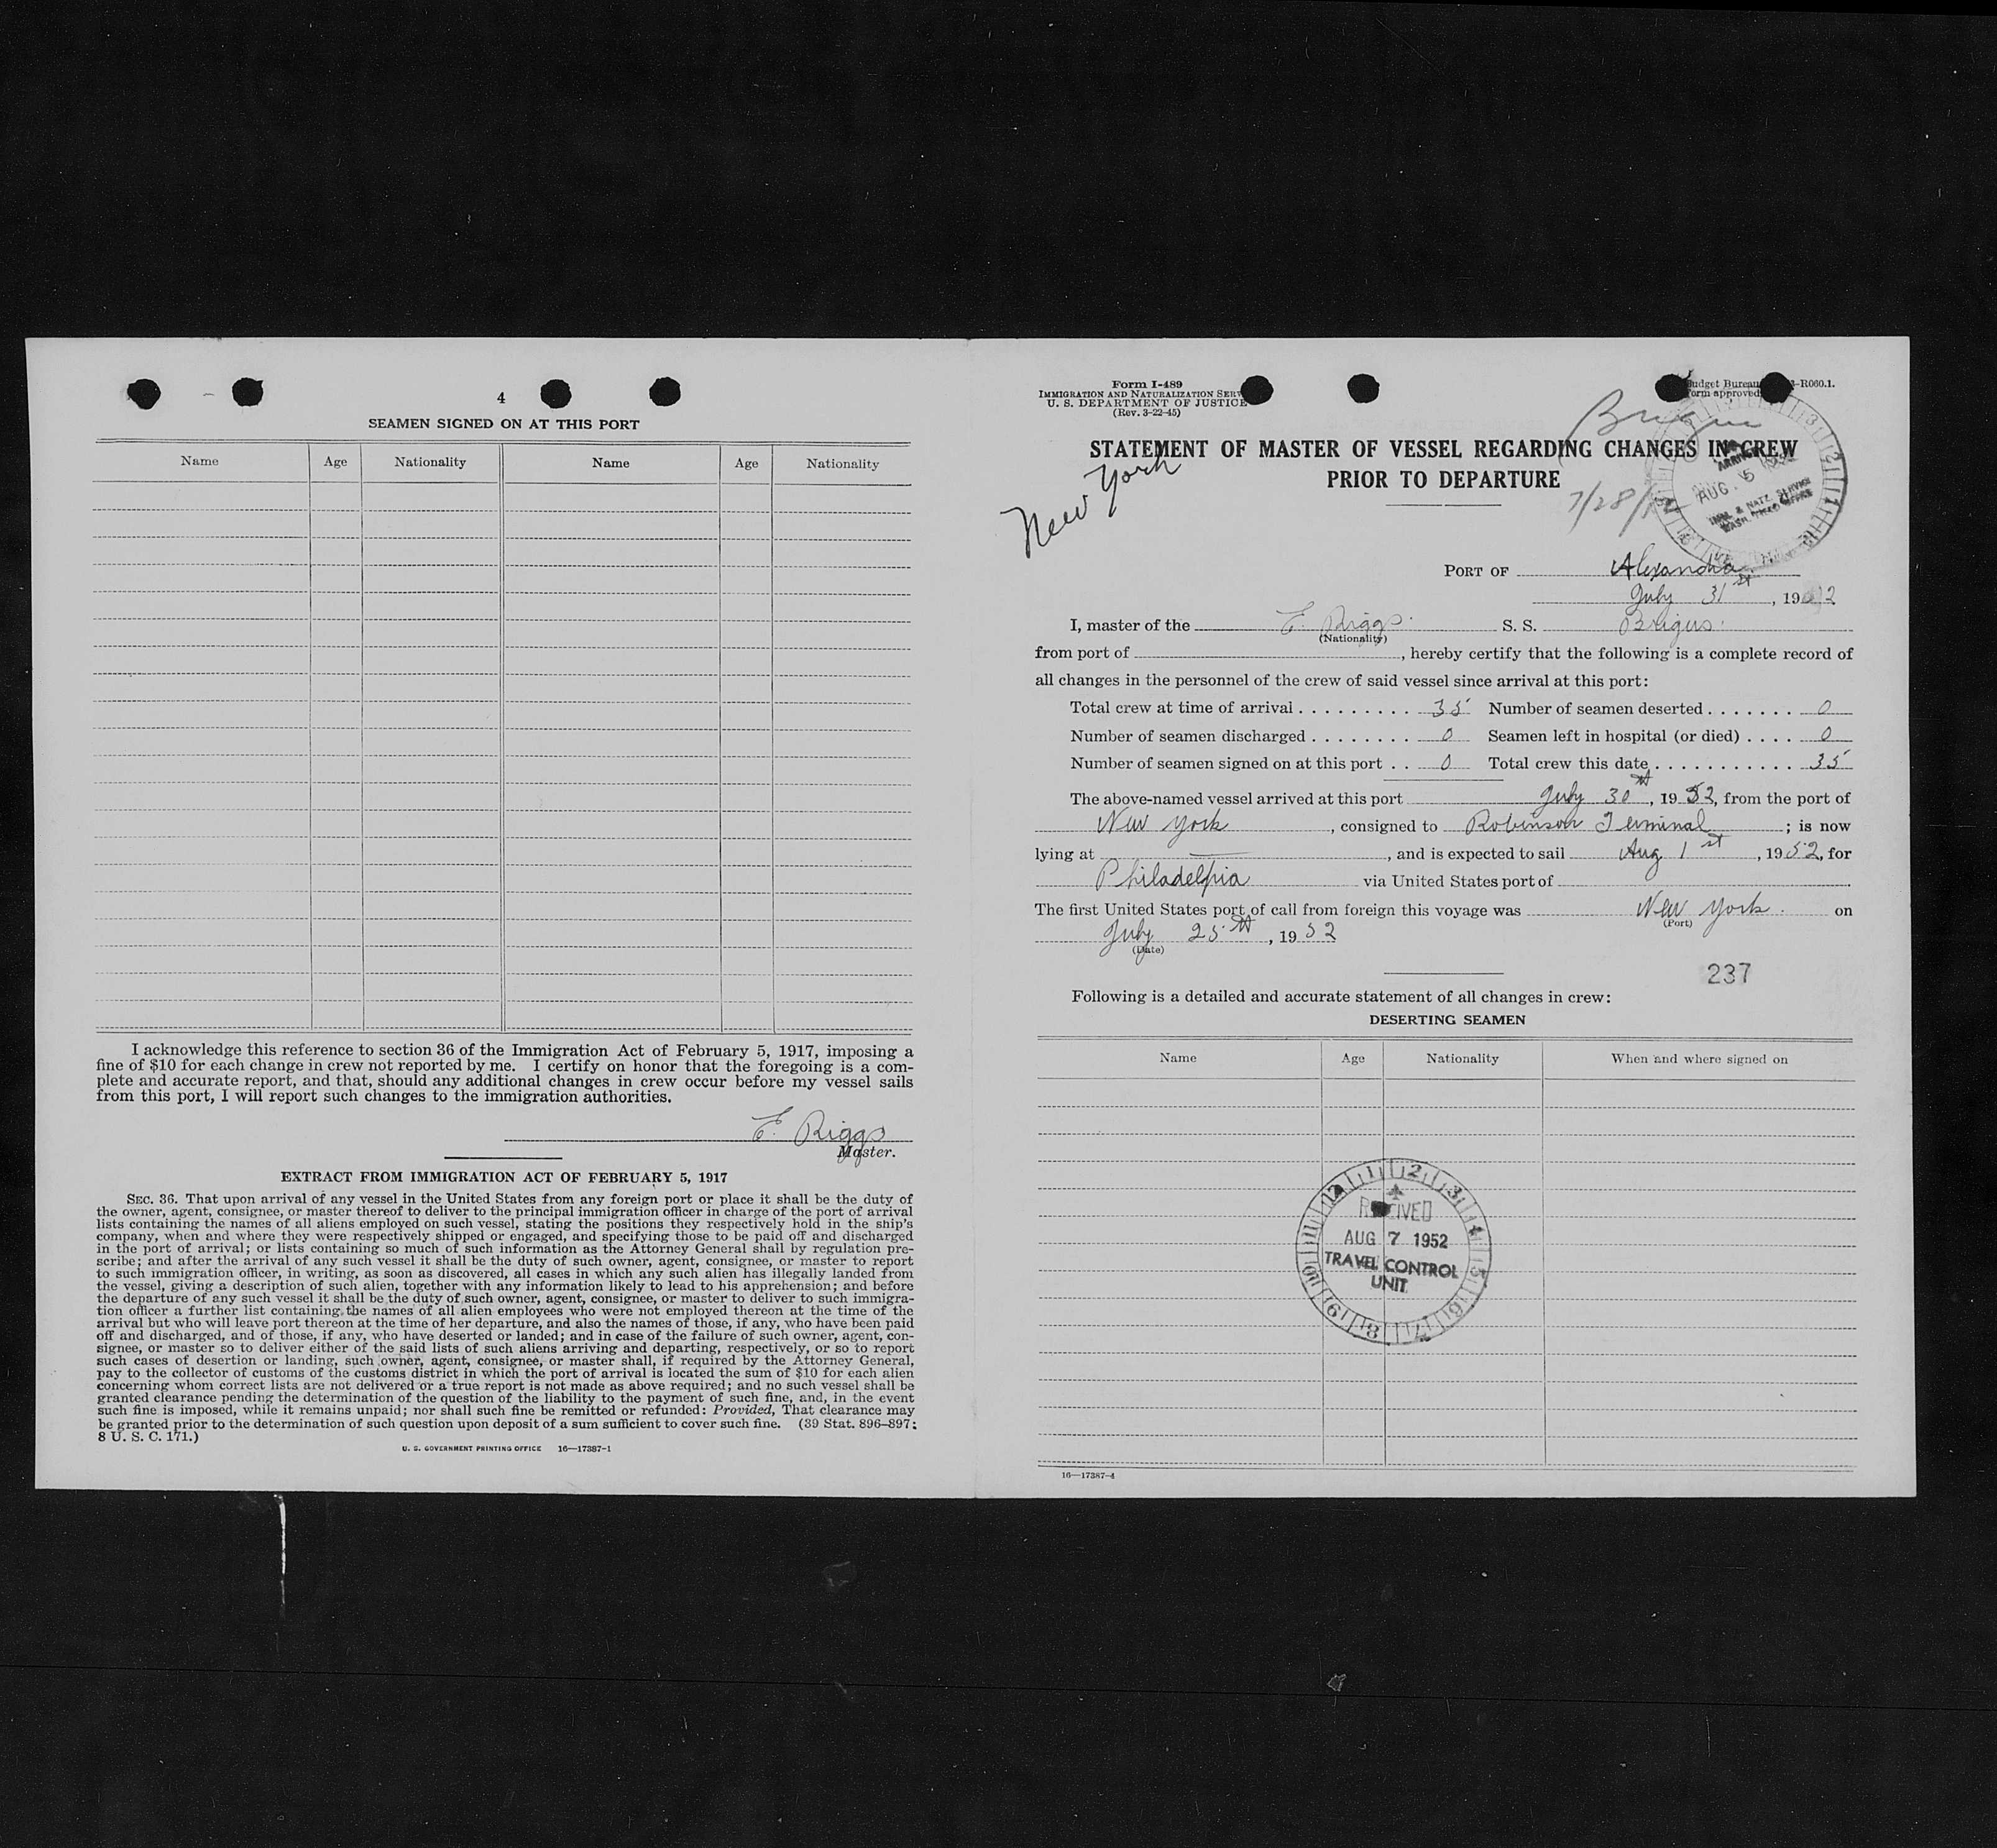 4
SEAMEN SIGNED ON AT THIS PORT
Name Age Nationality Name Age Nationality
I acknowledge this reference to section 36 of the Immigration Act of February 5, 1917, imposing a
fine of $10 for each change in crew not reported by me. I certify on honor that the foregoing is a com-
plete and accurate report, and that, should any additional changes in crew occur before my vessel sails
from this port, I will report such changes to the immigration authorities.
E. Riggs
Master.
EXTRACT FROM IMMIGRATION ACT OF FEBRUARY 5, 1917
SEC. 36. That upon arrival of any vessel in the United States from any foreign port or place it shall be the duty of
the owner, agent, consignee, or master thereof to deliver to the principal immigration officer in charge of the port of arrival
lists containing the names of all aliens employed on such vessel, stating the positions they respectively hold in the ship's
company, when and where they were respectively shipped or engaged, and specifying those to be paid off and discharged
in the port of arrival; or lists containing so much of such information as the Attorney General shall by regulation pre-
scribe; and after the arrival of any such vessel it shall be the duty of such owner, agent, consignee, or master to report
to such immigration officer, in writing, as soon as discovered, all cases in which any such alien has illegally landed from
the vessel, giving a description of such alien, together with any information likely to lead to his apprehension; and before
the departure of any such vessel it shall be the duty of such owner, agent, consignee, or master to deliver to such immigra-
tion officer a further list containing the names of all alien employees who were not employed thereon at the time of the
arrival but who will leave port thereon at the time of her departure, and also the names of those, if any, who have been paid
off and discharged, and of those, if any, who have deserted or landed; and in case of the failure of such owner, agent, con-
signee, or master so to deliver either of the said lists of such aliens arriving and departing, respectively, or so to report
such cases of desertion or landing, such owner, agent, consignee, or master shall, if required by the Attorney General,
pay to the collector of customs of the customs district in which the port of arrival is located the sum of $10 for each alien
concerning whom correct lists are not delivered or a true report is not made as above required; and no such vessel shall be
granted clearance pending the determination of the question of the liability to the payment of such fine, and, in the event
such fine is imposed, while it remains unpaid; nor shall such fine be remitted or refunded: Provided, That clearance may
be granted prior to the determination of such question upon deposit of a sum sufficient to cover such fine. (39 Stat. 896-897;
8 U. S. C. 171.)
U. S. GOVERNMENT PRINTING OFFICE 16—17387-1
Form I-489
IMMIGRATION AND NATURALIZATION SERV
U. S. DEPARTMENT OF JUSTICE
(Rev. 3-22-45)
Budget Bureau -R060.1.
Form approved
STATEMENT OF MASTER OF VESSEL REGARDING CHANGES IN CREW
PRIOR TO DEPARTURE
New York
7/28/
AUG 5
IMM. & NATZ. SERVICE
PORT OF Alexandria
July 31st, 1952
I, master of the E. Riggs. S. S. Brigus.
(Nationality)
from port of , hereby certify that the following is a complete record of
all changes in the personnel of the crew of said vessel since arrival at this port:
Total crew at time of arrival . . . . . . . . . . 35 Number of seamen deserted . . . . . . . 0
Number of seamen discharged . . . . . . . . 0 Seamen left in hospital (or died) . . . . 0
Number of seamen signed on at this port . . 0 Total crew this date . . . . . . . . . . . 35
The above-named vessel arrived at this port July 30th, 1952, from the port of
New York , consigned to Robinson Terminal ; is now
lying at — , and is expected to sail Aug 1st , 1952, for
Philadelpia via United States port of
The first United States port of call from foreign this voyage was New York. on
(Port)
July 25th, 1952
(Date)
237
Following is a detailed and accurate statement of all changes in crew:
DESERTING SEAMEN
Name Age Nationality When and where signed on
RECEIVED
AUG 7 1952
TRAVEL CONTROL
UNIT
16—17387-4